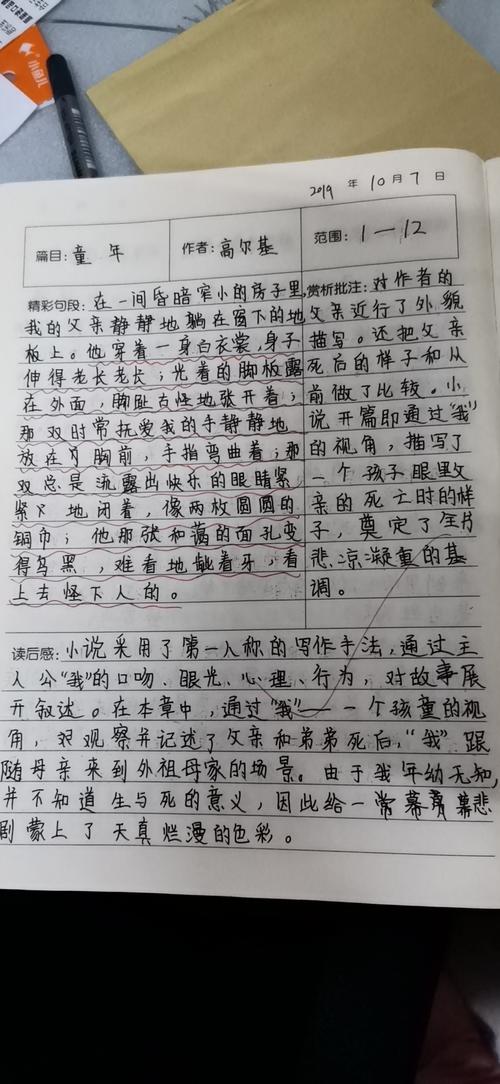 小鱼儿
2019 年 10 月 7 日
篇目：童 年
作者：高尔基
范围：1—12
精彩句段：在一间昏暗窄小的房子里，
我的父亲静静地躺在窗下的地
板上。他穿着一身白衣裳，身子
伸得老长老长；光着的脚板露
在外面，脚趾古怪地张开着；
那双时常抚爱我的手静静地
放在胸前，手指弯曲着；那
双总是流露出快乐的眼睛紧
紧地闭着，像两枚圆圆的
铜币；他那张和蔼的面孔变
得乌黑，难看地龇着牙，看
上去怪下人的。
赏析批注：对作者的
父亲近行了外貌
描写。还把父亲
死后的样子和从
前做了比较。小
说开篇即通过“我”
的视角，描写了
一个孩子眼里父
亲的死亡时的样
子，奠定了全片
悲凉凝重的基
调。
读后感：小说采用了第一人称的写作手法，通过主
人公“我”的口吻、眼光、心理、行为，对故事展
开叙述。在本章中，通过“我”——一个孩童的视
角，来观察并记述了父亲和弟弟死后，“我”跟
随母亲来到外祖母家的场景。由于我年幼无知，
并不知道生与死的意义，因此给一常幕幕悲
剧蒙上了天真烂漫的色彩。